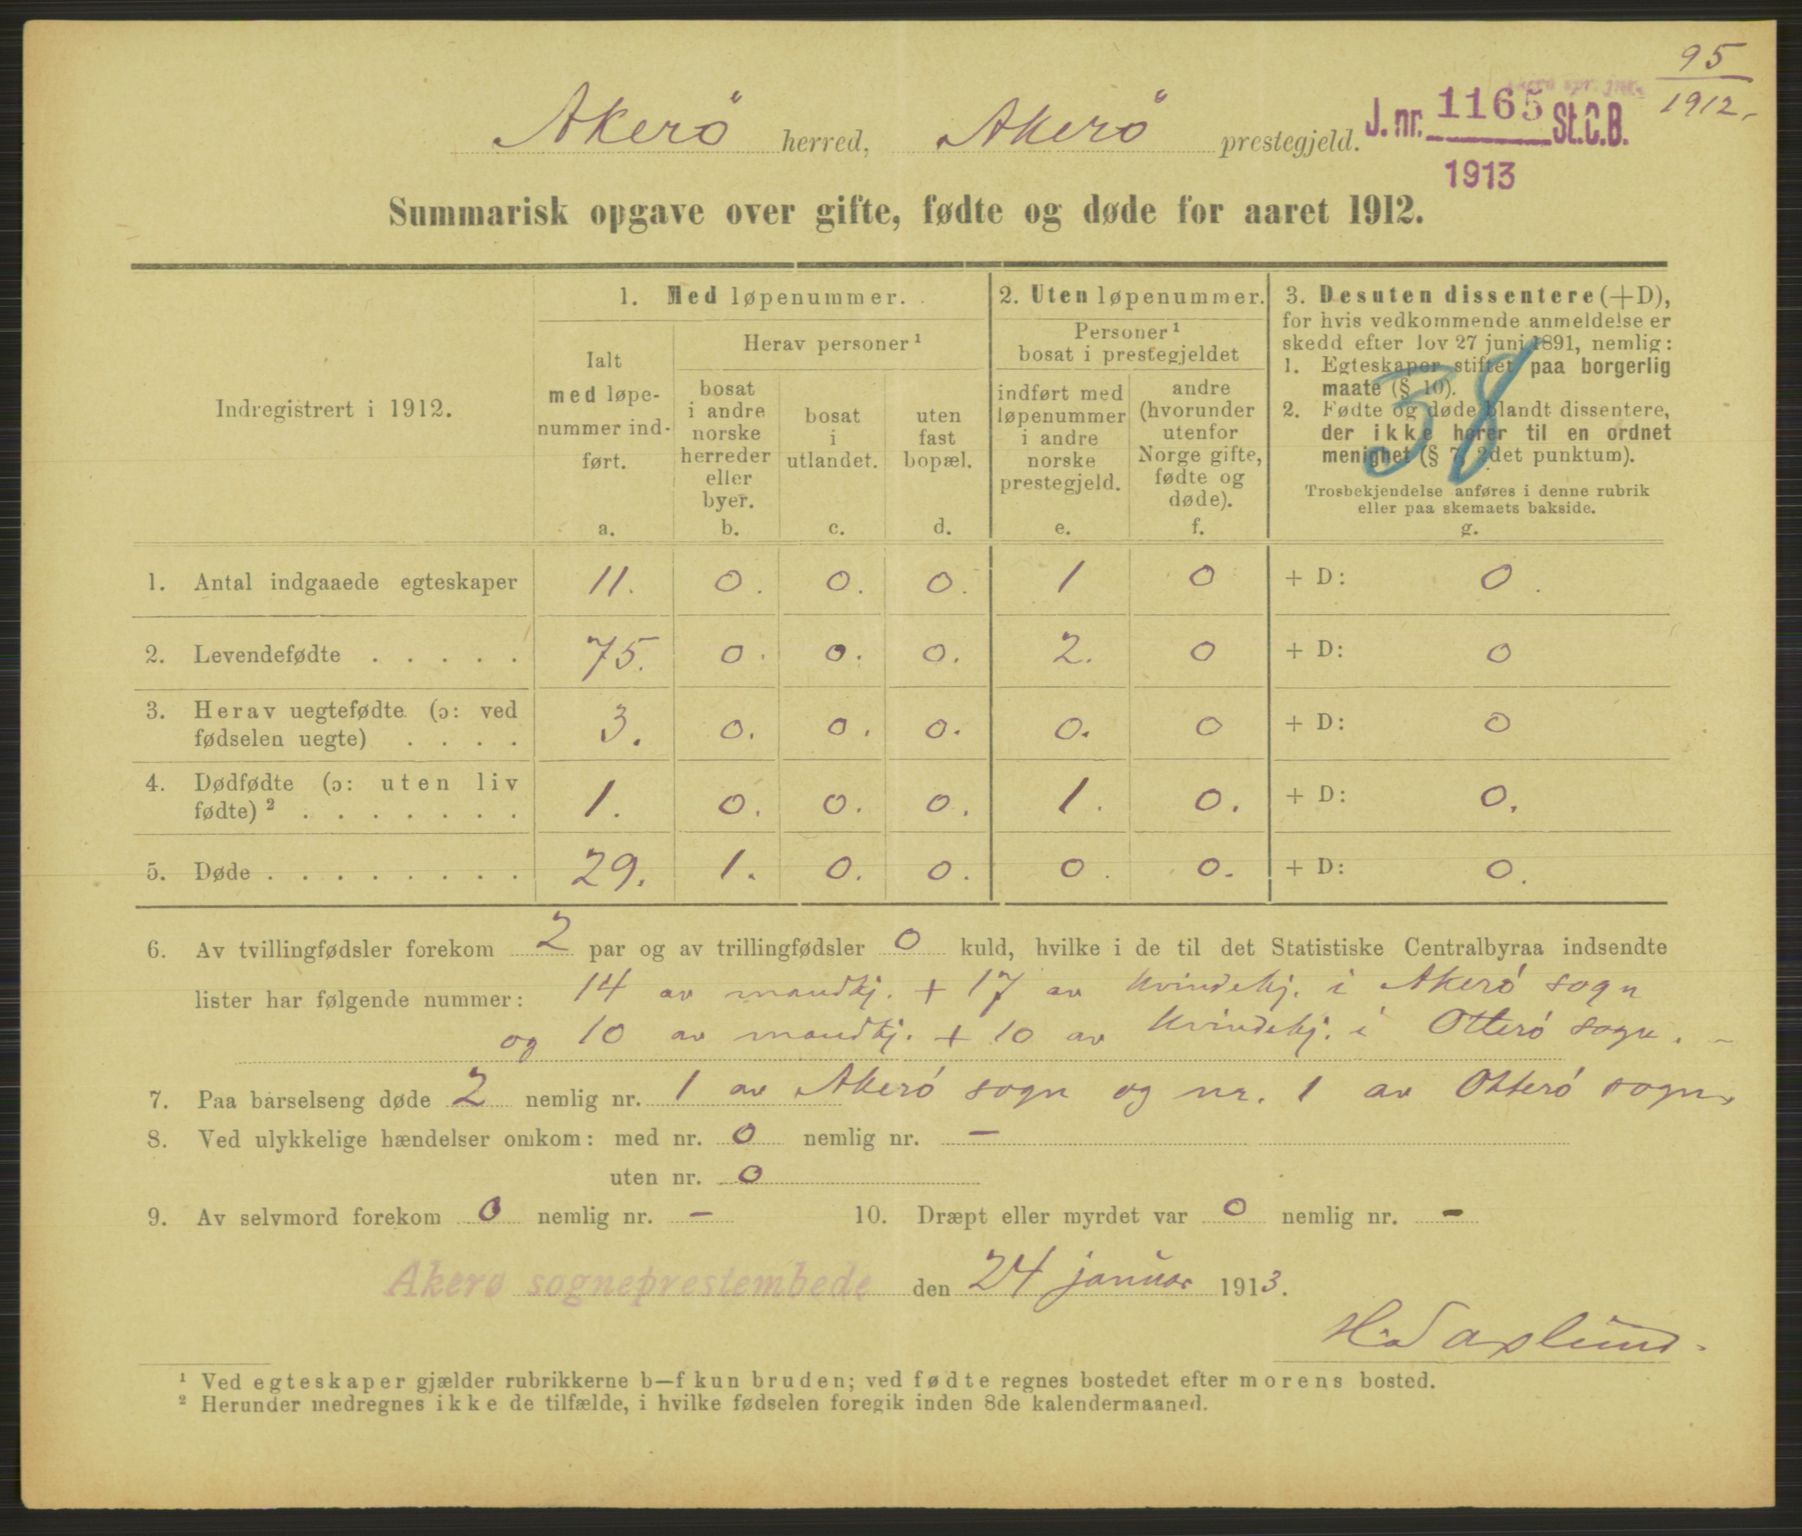 95
1912.
Akerö herred, Akerö prestegjeld.
J. nr. 1165 St.C.B.
1913
Summarisk opgave over gifte, fødte og døde for aaret 1912.
Indregistrert i 1912.
1. Med løpenummer.
Ialt
med løpe-
nummer ind-
ført.
a.
Herav personer ¹
bosat
i andre
norske
herreder
eller
byer.
b.
bosat
i
utlandet.
c.
uten
fast
bopæl.
d.
2. Uten løpenummer.
Personer ¹
bosat i prestegjeldet
indført med
løpenummer
i andre
norske
prestegjeld.
e.
andre
(hvorunder
utenfor
Norge gifte,
fødte og
døde).
f.
3. Desuten dissentere (+D),
for hvis vedkommende anmeldelse er
skedd efter lov 27 juni 1891, nemlig:
1. Egteskaper stiftet paa borgerlig
maate (§ 10).
2. Fødte og døde blandt dissentere,
der ikke hører til en ordnet
menighet (§ 7, 2det punktum).
Trosbekjendelse anføres i denne rubrik
eller paa skemaets bakside.
g.
38
1. Antal indgaaede egteskaper 11. 0. 0. 0. 1 0 + D: 0.
2. Levendefødte . . . . . 75. 0. 0. 0. 2. 0 + D: 0
3. Herav uegtefødte (ɔ: ved
fødselen uegte) . . . . 3. 0. 0. 0. 0. 0 + D: 0
4. Dødfødte (ɔ: uten liv
fødte) ² . . . . . . . 1. 0. 0. 0. 1. 0. + D: 0.
5. Døde . . . . . . . . 29. 1. 0. 0. 0. 0. + D: 0.
6. Av tvillingfødsler forekom 2 par og av trillingfødsler 0 kuld, hvilke i de til det Statistiske Centralbyraa indsendte
lister har følgende nummer: 14 av mandkj. + 17 av kvindekj. i Akerö sogn
og 10 av mandkj. + 10 av kvindekj. i Otterö sogn. -
7. Paa barselseng døde 2 nemlig nr. 1 av Akerö sogn og nr. 1 av Otterö sogn.
8. Ved ulykkelige hændelser omkom: med nr. 0 nemlig nr. -
uten nr. 0
9. Av selvmord forekom 0 nemlig nr. - 10. Dræpt eller myrdet var 0 nemlig nr. -
Akerø sogneprestembede den 24 januar 1913.
H. Saxlund.
¹ Ved egteskaper gjælder rubrikkerne b—f kun bruden; ved fødte regnes bostedet efter morens bosted.
² Herunder medregnes ikke de tilfælde, i hvilke fødselen foregik inden 8de kalendermaaned.